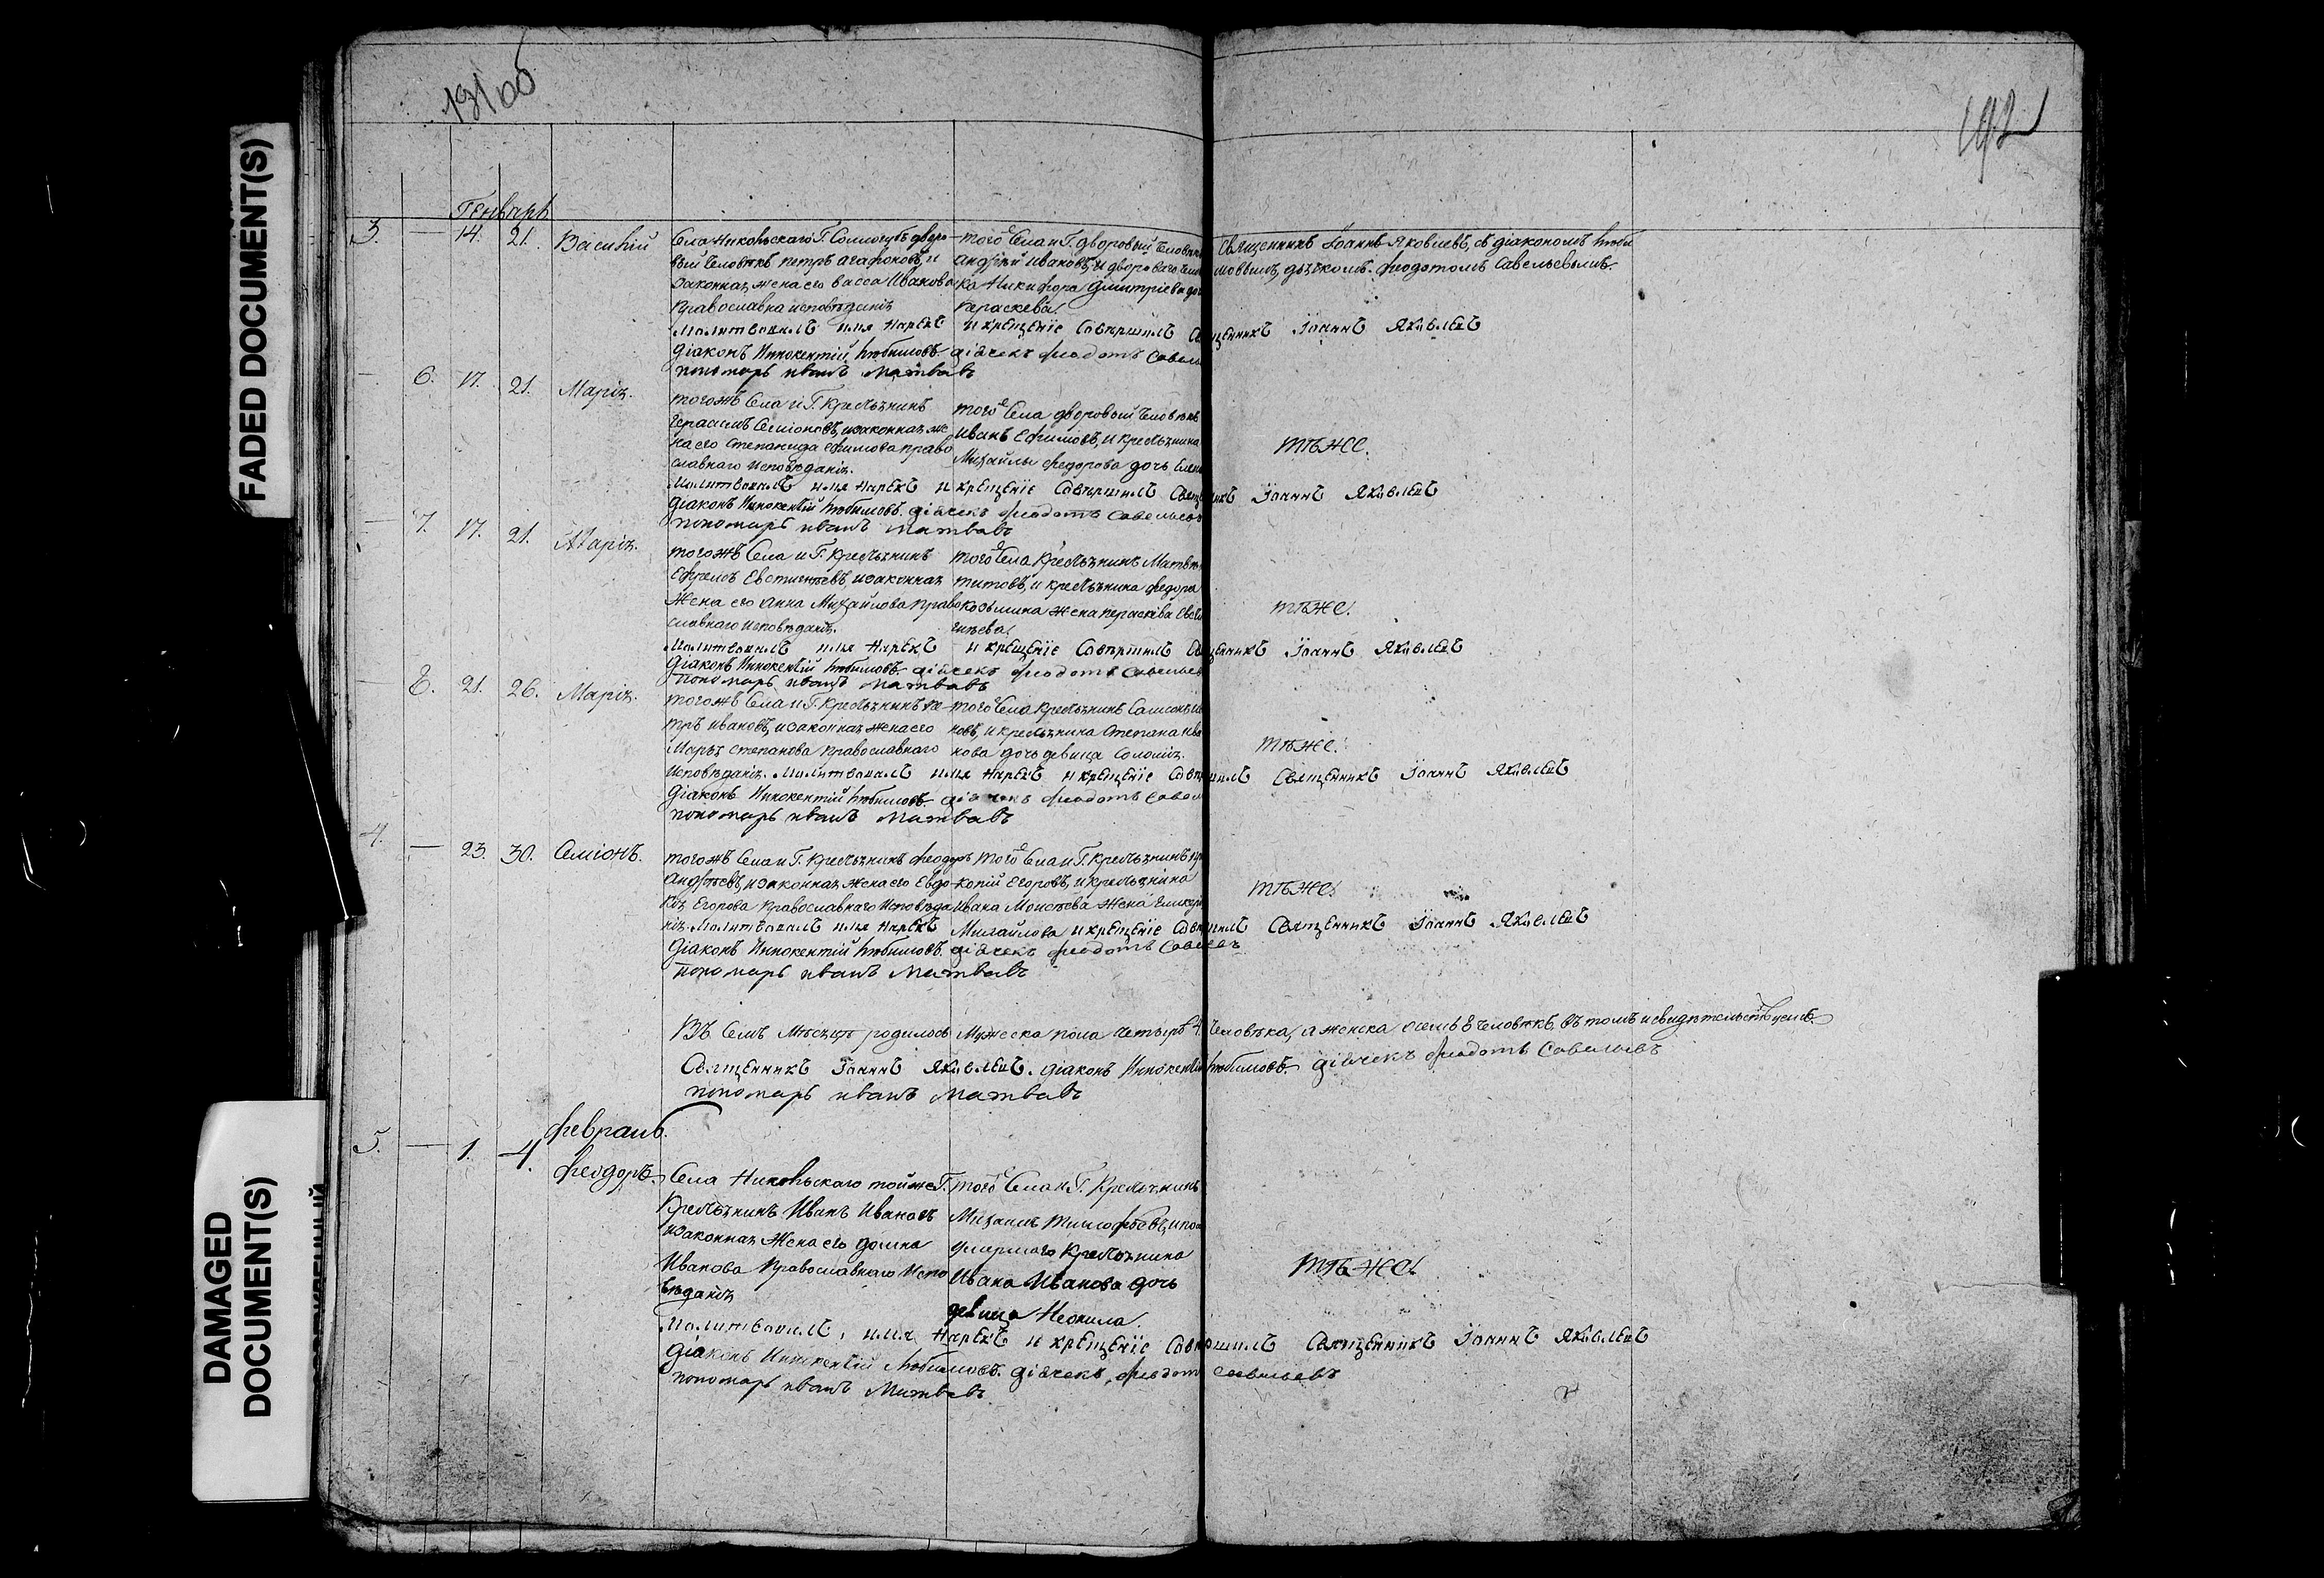 FADED DOCUMENT(S)
DAMAGED DOCUMENT(S)
192
Генварь
3. — 14. 21. Василий
Села Никольскаго Г. Сологубъ дворо-
вый человѣкъ петръ агафоновъ, и
законная жена его васса Иванова
православна исповѣданія
того Села и Г. дворовый человѣкъ
андрей ивановъ, и дворовагo чело
ка Никифора Дмитріева до
Параскева.
Священникъ Iоаннъ Яковлевъ, съ діакономъ Люби
мовымъ, дьячкомъ феодотомъ Савельевымъ.
Молитвовалъ имя нарекъ и крещенїе Совершилъ Священникъ Їоаннъ Яковлевъ
Діаконъ Иннокентій Любимовъ. діячекъ Феодотъ Савель
пономарь иванъ Матвевъ
— 6. 17. 21. Марія.
тогожъ Села и Г. крестьянинъ
Герасимъ Семіоновъ, и законная же
на его Степанида ефимова право
славнаго исповѣданія.
того Села дворовый человѣкъ
Иванъ Ефимовъ, и крестьянина
Михайлы Федорова дочь
тѣже.
Молитвовалъ имя нарекъ и крещенїе Совершилъ Священникъ Їоаннъ Яковлевъ
Діаконъ Иннокентій Любимовъ. діячекъ Феодотъ Савельев
пономарь иванъ Матвевъ
— 7. 17. 21. Марія.
тогожъ Села и Г. крестьянинъ
Ефремъ Евстигнѣевъ, и законная
жена его анна Михайлова право
славнаго исповѣданія.
того Села крестьянинъ Матвѣй
титовъ, и крестьянина Федора
козьмина жена параскева Евсти
гнѣева.
тѣже.
Молитвовалъ имя нарекъ и крещенїе Совершилъ Священникъ Їоаннъ Яковлевъ
Діаконъ Иннокентій Любимовъ. діячекъ Феодотъ Савельев
пономарь иванъ Матвевъ
— 8. 21. 26. Марія.
тогожъ Села и Г. крестьянинъ пе-
тръ ивановъ, и законная жена его
Марья Степанова православнаго
исповѣданія.
того Села крестьянинъ Самсонъ ива
новъ, и крестьянина Степана Ива
нова дочь девица Соломія.
тѣже.
Молитвовалъ имя нарекъ и крещенїе Совершилъ Священникъ Їоаннъ Яковлевъ
Діаконъ Иннокентій Любимовъ. діячекъ Феодотъ Савел
пономарь иванъ Матвевъ
4. — 23. 30. Семіонъ.
тогожъ Села и Г. крестьянинъ феодоръ
андрѣевъ, и законная жена его Евдо-
кія Егорова православнаго исповѣда
нія.
того Села и Г. крестьянинъ про
копій Егоровъ, и крестьянина
Ивана Моисѣева жена Гликері
Михайлова
тѣже.
Молитвовалъ имя нарекъ и крещенїе Совершилъ Священникъ Їоаннъ Яковлевъ
Діаконъ Иннокентій Любимовъ. діячекъ Феодотъ Савелев
пономарь иванъ Матвевъ
Въ Семъ Мѣсяцѣ родилось Мужеска пола четыре 4. человѣка, а женска осемь 8 человѣкъ, въ томъ и свидѣтельствуемъ.
Священникъ Їоаннъ Яковлевъ. діаконъ Иннокентій Любимовъ. діячекъ Феодотъ Савельевъ
пономарь иванъ Матвевъ
февраль.
5. — 1. 4. феодоръ.
Села Никольскаго той же Г.
крестьянинъ Иванъ Ивановъ
и законная жена его домна
Иванова православнаго Испо
вѣданія
того Села и Г. Крестьянинъ
Михаилъ Тимофѣевъ, и по
умершаго крестьянина
Ивана Иванова дочь
девица Неонила.
тѣже.
Молитвовалъ, имя нарекъ и крещенїе Совершилъ Священникъ Їоаннъ Яковлевъ
Діаконъ Иннокентій Любимовъ. діячекъ Феодотъ Савельевъ
пономарь иванъ Матвевъ